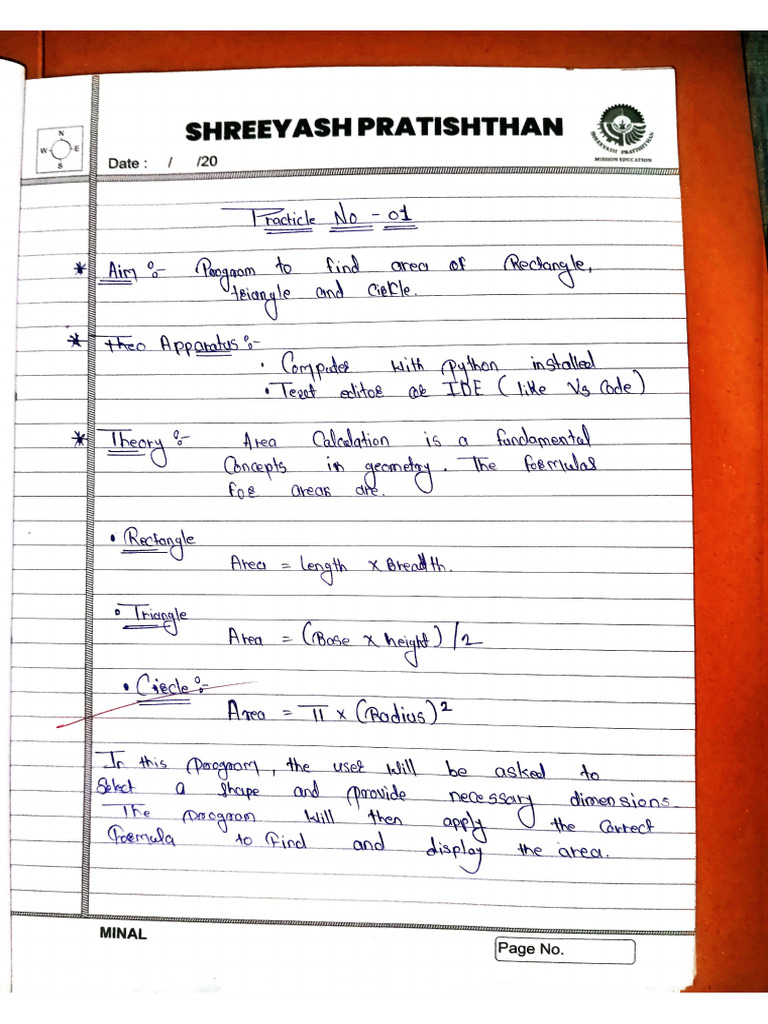 SHREEYASH PRATISHTHAN
N
W E
S
SHREEYASH PRATISHTHAN
MISSION EDUCATION
Date : / /20
Practicle No - 01
* Aim :- Program to find area of Rectangle,
triangle and Circle.
* Theo Apparatus :-
• Computer with python installed
• Text editor or IDE (like Vs Code)
* Theory :- Area Calculation is a fundamental
Concepts in geometry. The formulas
for areas are.
• Rectangle
Area = Length x Breadth.
• Triangle
Area = (Base x height) / 2
• Circle :-
Area = π x (Radius)²
In this program, the user will be asked to
Select a shape and provide necessary dimensions.
The program will then apply the correct
formula to find and display the area.
MINAL
Page No.